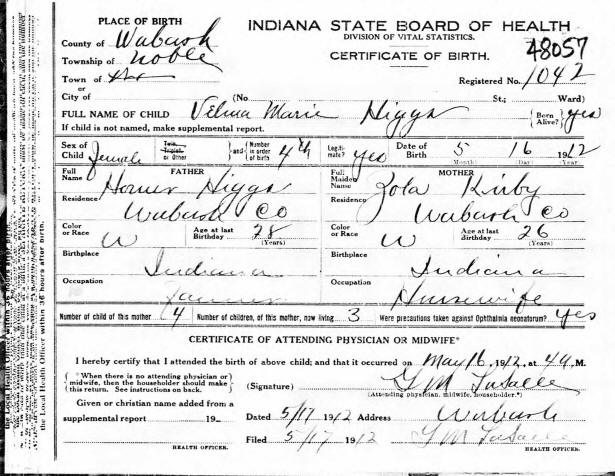 PLACE OF BIRTH
INDIANA STATE BOARD OF HEALTH
County of Wabash
DIVISION OF VITAL STATISTICS.
48057
Township of Noble
CERTIFICATE OF BIRTH.
Town of
Registered No. 1042
or
City of (No. St.; Ward)
FULL NAME OF CHILD Velma Marie Higgs {Born Alive?} yes
If child is not named, make supplemental report.
Sex of Child Female Twin, Triplet, or Other } and { Number in order of birth 4th Legiti-mate? yes Date of Birth 5 16 1912
Month) Day) Year
Full Name FATHER Homer Higgs
Full Maiden Name MOTHER Zola Kirby
Residence Wabash Co
Residence Wabash Co
Color or Race W Age at last Birthday 28 (Years)
Color or Race W Age at last Birthday 26 (Years)
Birthplace Indiana
Birthplace Indiana
Occupation Farmer
Occupation Housewife
Number of child of this mother 4 Number of children, of this mother, now living 3 Were precautions taken against Ophthalmia neonatorum? yes
CERTIFICATE OF ATTENDING PHYSICIAN OR MIDWIFE*
I hereby certify that I attended the birth of above child; and that it occurred on May 16, 1912, at 4 A, M.
{*When there is no attending physician or midwife, then the householder should make this return. See instructions on back.}
(Signature) G M LaSalle
(Attending physician, midwife, householder.*)
Given or christian name added from a
supplemental report 19
Dated 5/17 1912 Address Wabash
Filed 5/17 1912 G M LaSalle
HEALTH OFFICER.
HEALTH OFFICER.
the Local Health Officer within 36 hours after birth.